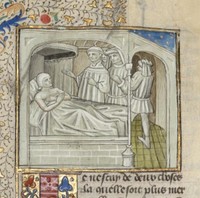 e ne scay de deux choses
la quelle soit plus mer